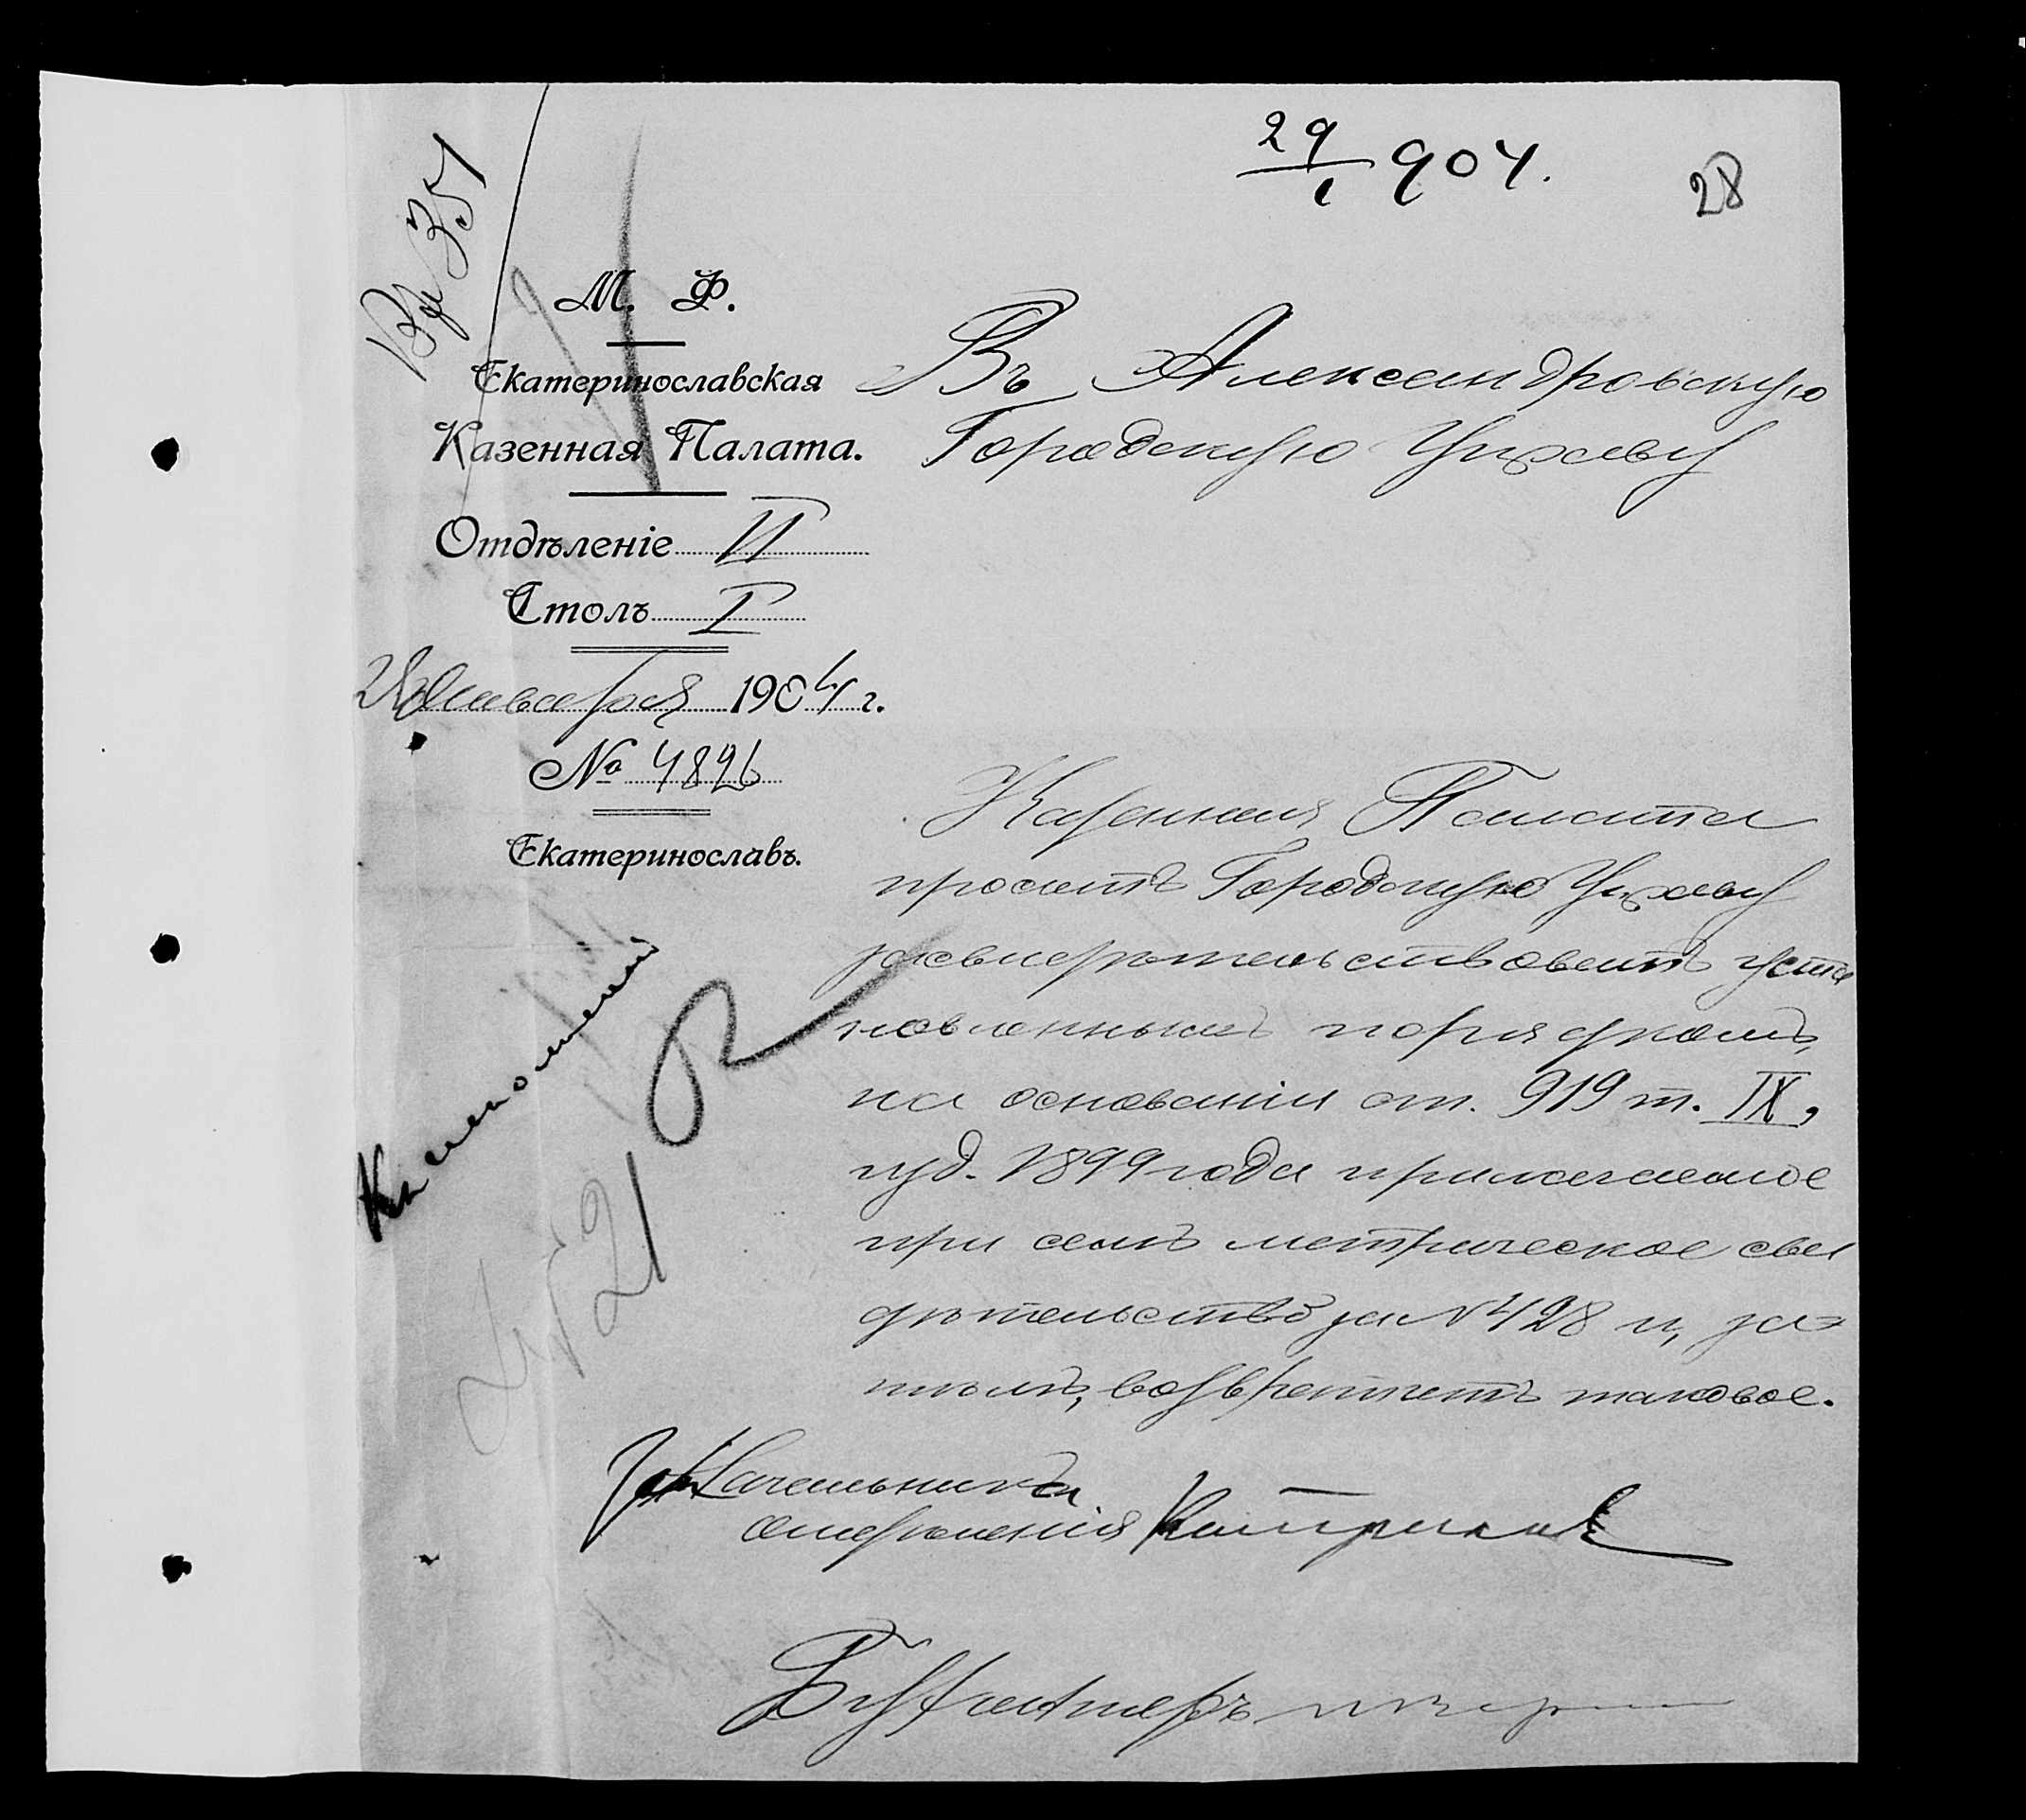 29/1 904.
28
Вх 351
М. Ф.
Екатеринославская
Казенная Палата.
Отдѣленіе II
Столъ I
28 Января 1904 г.
№ 4826
Екатеринославъ.
Въ Александровскую
Городскую Управу
Казенная Палата
проситъ Городскую Управу
засвидѣтельствовать уста
новленнымъ порядкомъ,
на основаніи ст. 919 т. IX,
изд. 1899 года прилагаемое
при семъ метрическое сви
дѣтельство за № 428 и, за-
тѣмъ, возвратить таковое.
За Начальника
отдѣленія
Бухгалтеръ
21